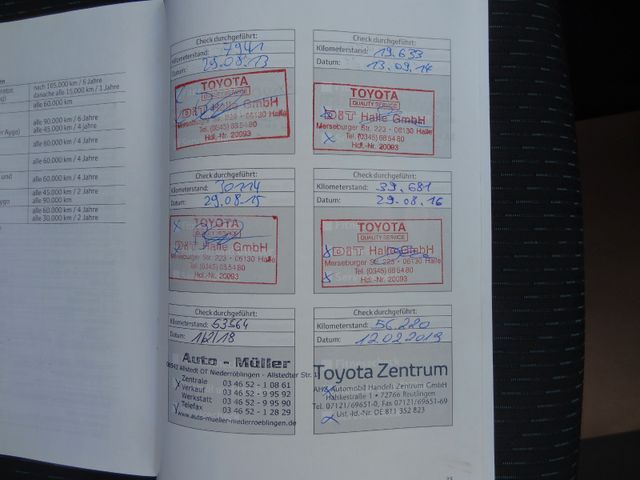 nach 105.000 km / 6 Jahre
danache alle 15.000 km / 1 Jahre
alle 60.000 km
alle 90.000 km / 6 Jahre
alle 45.000 km / 4 Jahre
alle 60.000 km / 4 Jahre
alle 60.000 km / 4 Jahre
alle 45.000 km / 2 Jahre
alle 90.000 km
alle 60.000 km / 4 Jahre
alle 30.000 km / 2 Jahre
Check durchgeführt:
Kilometerstand: 7941
Datum: 29.08.13
TOYOTA
QUALITY SERVICE
DIT Halle GmbH
Merseburger Str. 223 - 06130 Halle
Tel. (0345) 68 54 80
Hdl.-Nr. 20093
Check durchgeführt:
Kilometerstand: 19.633
Datum: 13.09.14
TOYOTA
QUALITY SERVICE
DIT Halle GmbH
Merseburger Str. 223 - 06130 Halle
Tel. (0345) 68 54 80
Hdl.-Nr. 20093
Check durchgeführt:
Kilometerstand: 30114
Datum: 29.08.15
TOYOTA
QUALITY SERVICE
DIT Halle GmbH
Merseburger Str. 223 - 06130 Halle
Tel. (0345) 68 54 80
Hdl.-Nr. 20093
Check durchgeführt:
Kilometerstand: 39.681
Datum: 29.08.16
TOYOTA
QUALITY SERVICE
DIT Halle GmbH
Merseburger Str. 223 - 06130 Halle
Tel. (0345) 68 54 80
Hdl.-Nr. 20093
Check durchgeführt:
Kilometerstand: 53564
Datum:
Auto - Müller
06542 Allstedt OT Niederröblingen - Allstedter Str. 1
Zentrale 03 46 52 - 1 08 61
Verkauf 03 46 52 - 9 95 90
Werkstatt 03 46 52 - 9 95 92
Telefax 03 46 52 - 1 28 29
www.auto-mueller-niederroeblingen.de
Check durchgeführt:
Kilometerstand: 56.220
Datum: 12.02.2019
Toyota Zentrum
AHZ Automobil Handels Zentrum GmbH
Halskestraße 1 • 72766 Reutlingen
Tel. 07121/69651-0, Fax 07121/69651-69
USt. Id.-Nr. DE 811 352 823